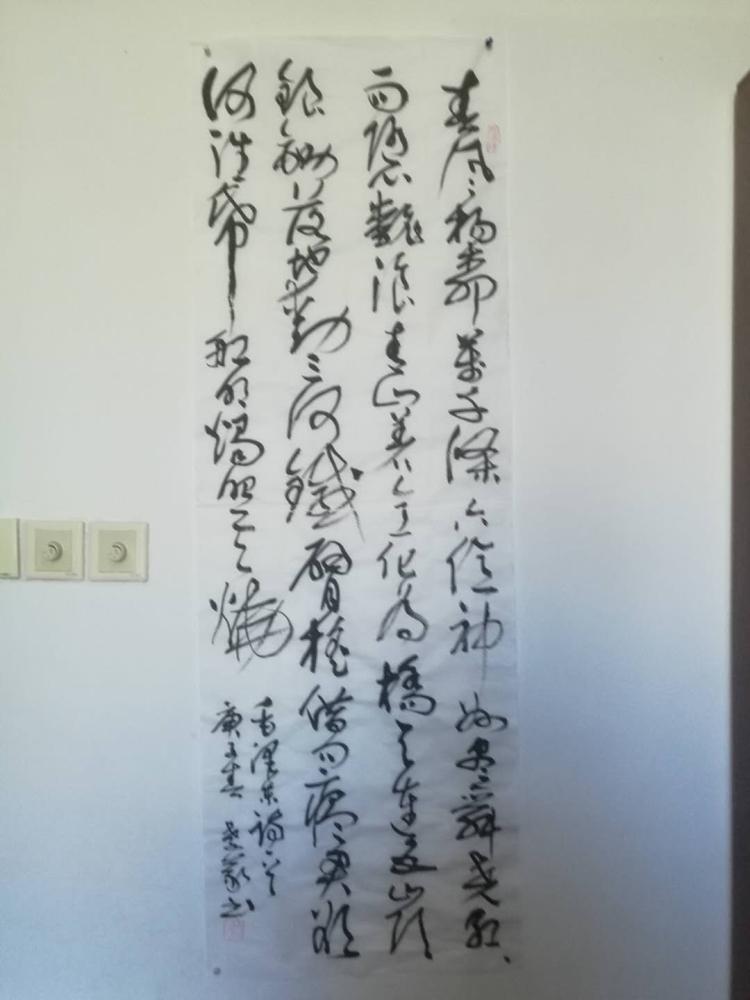 春風楊柳萬千條六億神州盡舜堯紅
雨随心翻浪青山着意化为橋天連五岭
銀鋤落地動三河鐵臂摇借问瘟君欲
何往纸船明燭照天燒
毛澤東詩一首
庚子春 书